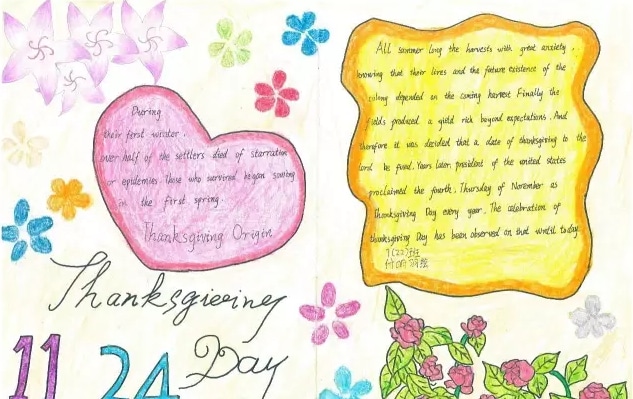 During
their first winter,
over half of the settlers died of starvation
or epidemics. Those who survived began sowing
in the first spring.
Thanksgiving Origin
Thanksgieving
Day
11 24
All summer long the harvests with great anxiety,
knowing that their lives and the future existence of the
colony depended on the coming harvest Finally the
fields produced a yield rich beyond expectations. And
therefore it was decided that a date of thanksgiving to the
lord be fixed. Years later, president of the united states
proclaimed the fourth. Thursday of November as
Thanksgiving Day every year. The celebration of
thanksgiving Day has been observed on that until today.
班